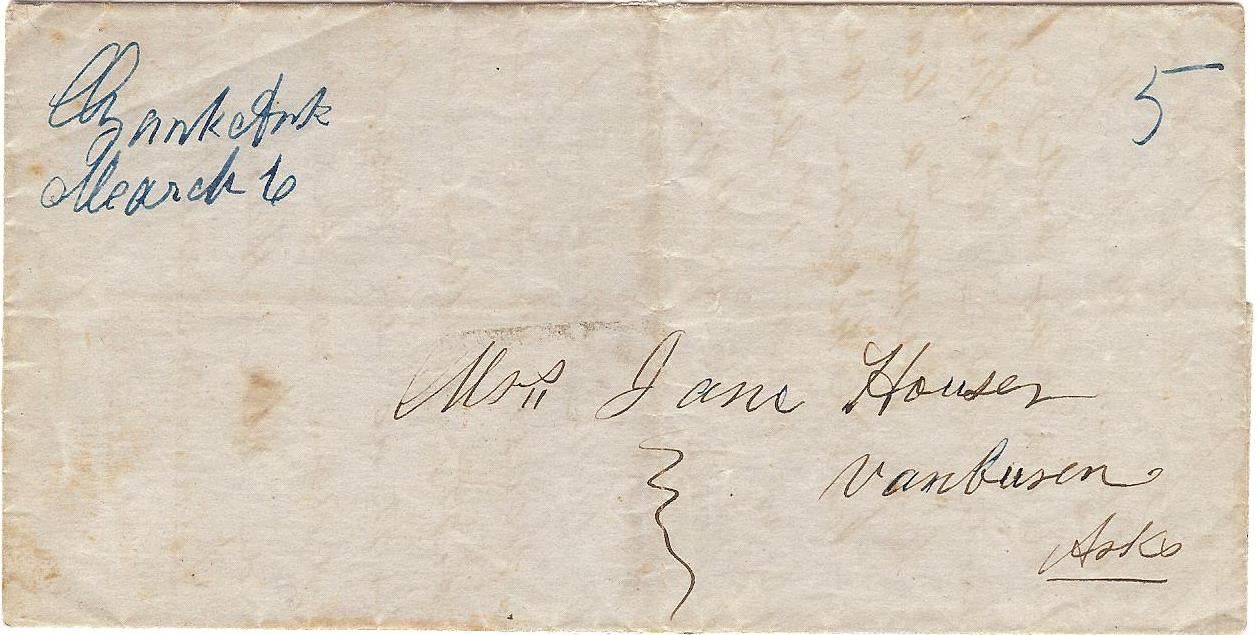 Ozark Ark
March 6
5
Mrs Jane Houser
Vanburen
Arks